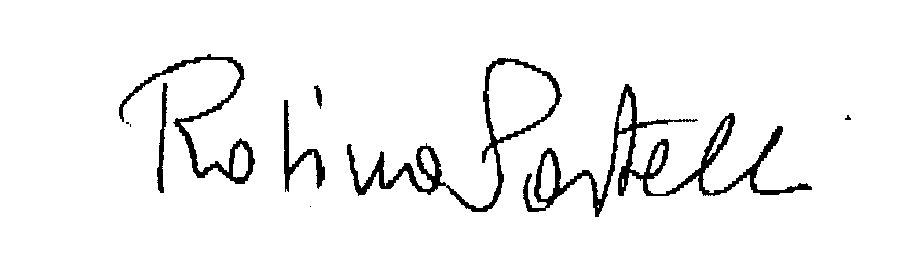 Rotina Portelli